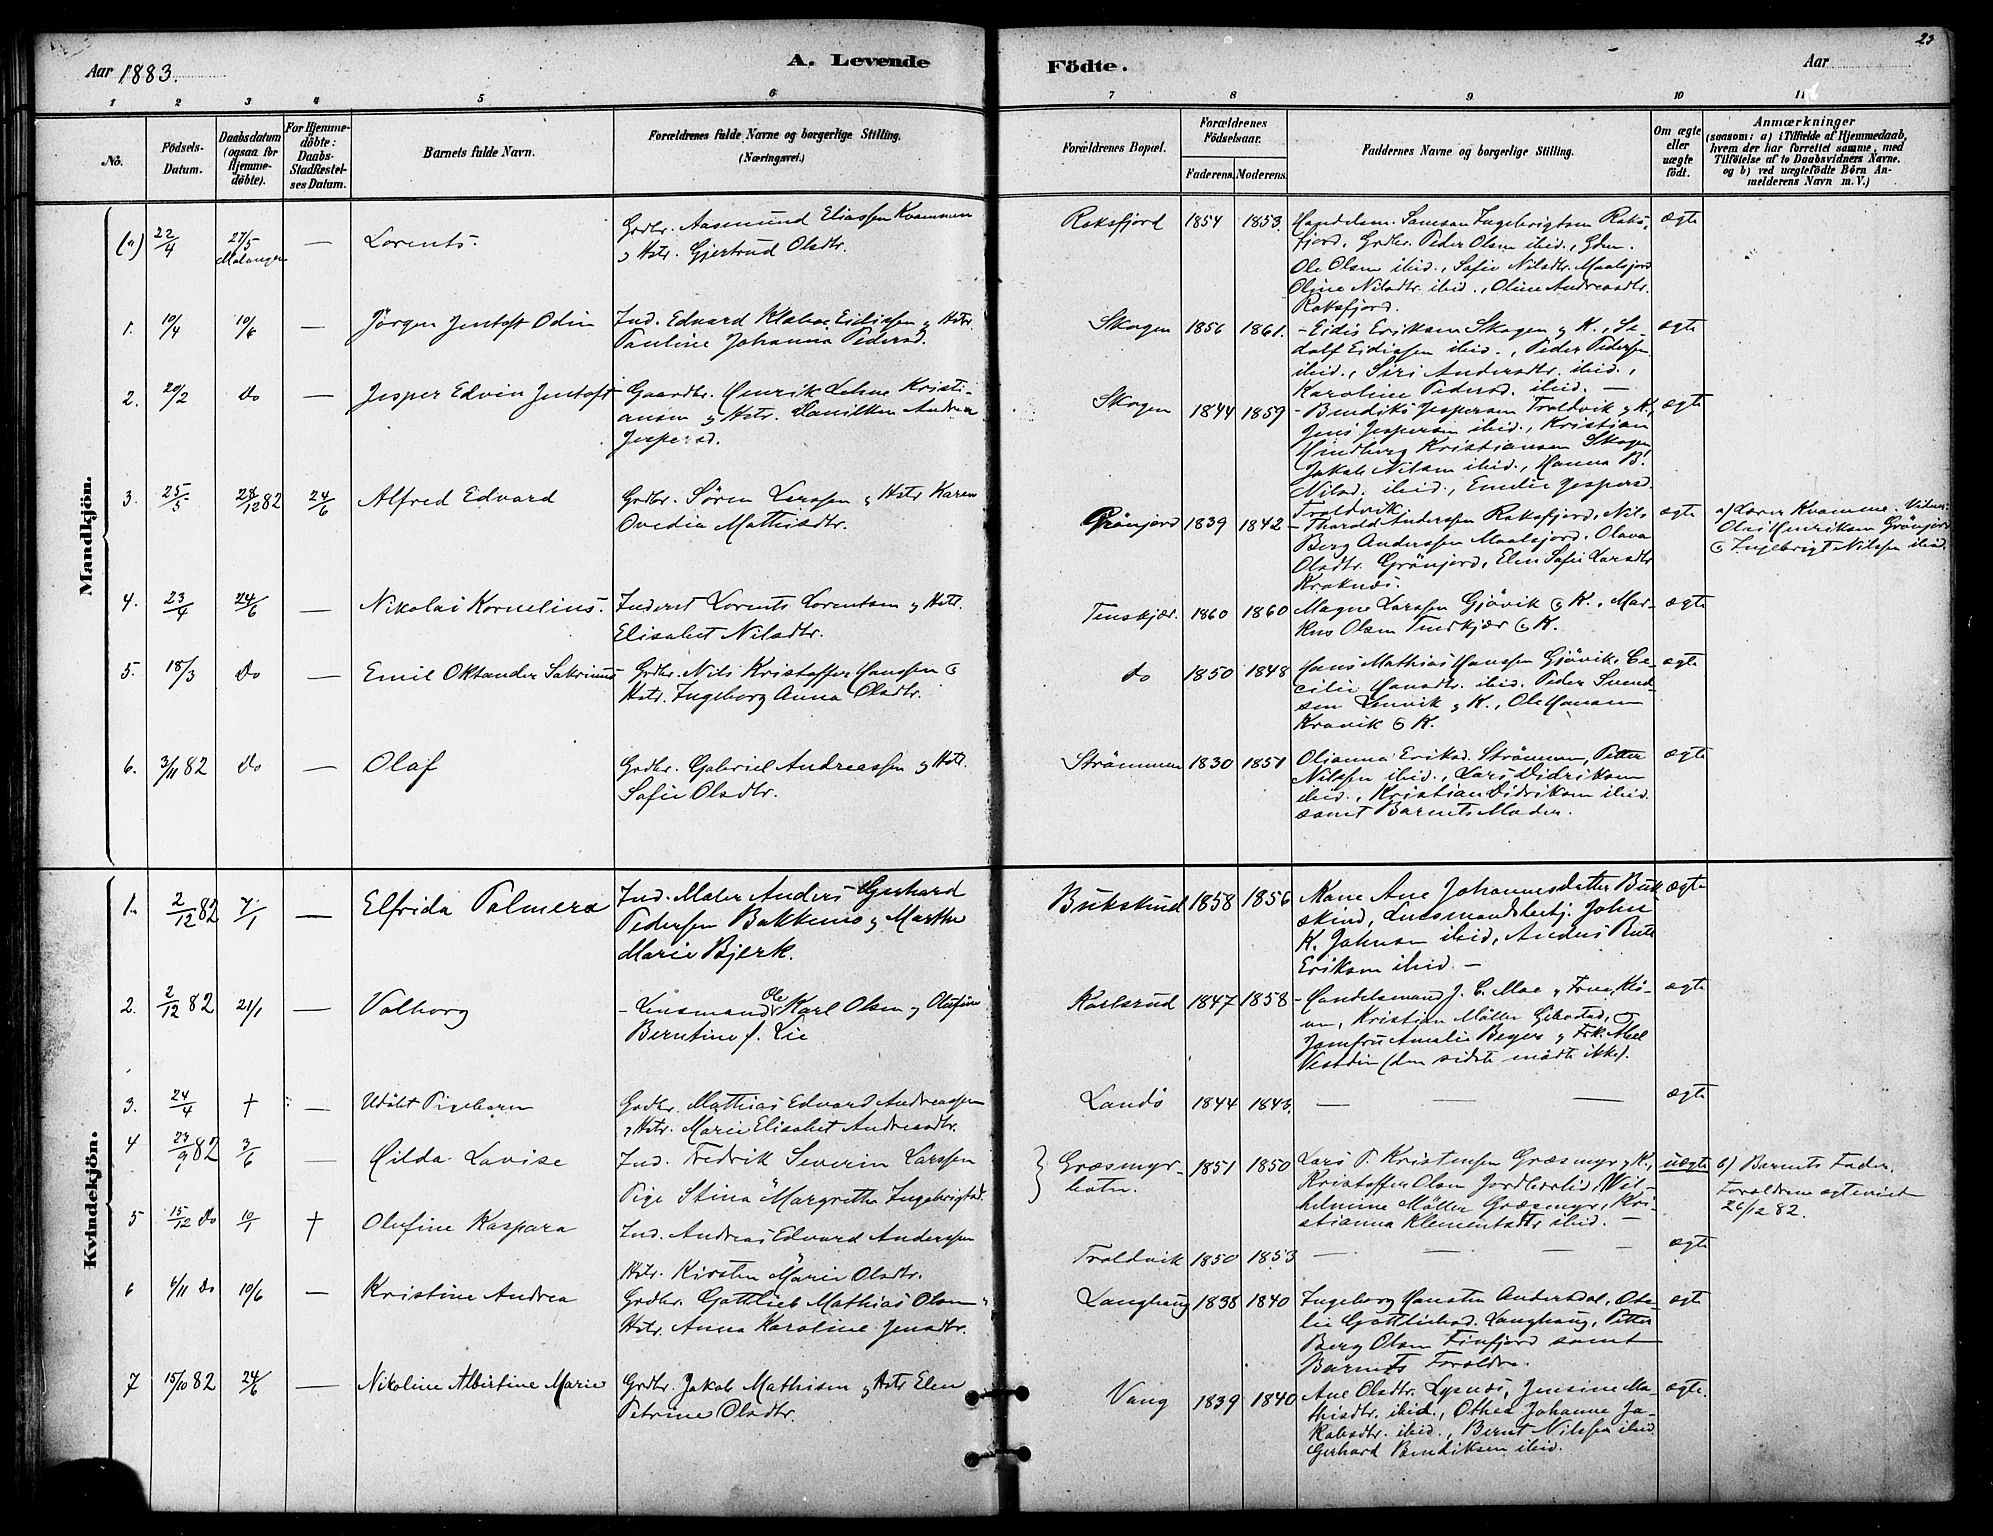 23
Aar 1883.
A. Levende
Födte.
Aar
1 2 3 4 5 6 7 8 9 10 11
No.
Födsels-Datum.
Daabsdatum (ogsaa for Hjemme-döbte).
For Hjemme-döbte: Daabs-Stadfæstel-ses Datum.
Barnets fulde Navn.
Forældrenes fulde Navne og borgerlige Stilling.
(Næringsvei.)
Forældrenes Bopæl.
Forældrenes Födselsaar.
Faderens. Moderens.
Faddernes Navne og borgerlige Stilling.
Om ægte eller uægte födt.
Anmærkninger
(saasom: a) i Tilfælde af Hjemmedaab, hvem der har forrettet samme, med Tilföielse af to Daabsvidners Navne. og b) ved uægtefödte Börn An-melderens Navn m. V.)
Mandkjön.
(a) 22/4 27/5 Malangen — Lorents. Grdbr. Aasmund Eliassen Kvammen
og Hstr. Gjertrud Olsdtr.
Roksfjord 1854 1853. Handelsm. Samson Ingebrigtsen Roks- ægte
fjord, Grdbr. Peder Olsen ibid.,
Ole Olsen ibid., Sofie Nilsdtr. Maalsjord
Oline Nilsdtr. ibid., Oline Andreasdtr.
Roksfjord.
1. 10/4 10/6 — Jörgen Jentoft Odin Ind. Edvard Eidissen og Hstr.
Pauline Johanna Pedersd.
Skogen 1856 1861. – Eidis Eriksen Skogen og K., Se- ægte
dolf Eidissen ibid., Peder Pedersen
ibid., Siri Andersdtr. ibid.,
Karoline Pedersd. ibid. —
2. 20/2 do — Jesper Edvin Jentoft – Gaardbr. Henrik Kristi-
ansen og Hstr. Andrea
Jespersd.
Skogen 1844 1859 – Bendiks Jespersen Troldvik og K., ægte
Jens Jespersen ibid., Kristian
Hindberg Kristiansen Skogen
Jakob Nilsen ibid., Hanna B.
Nilsd. ibid., Emelie Jespersd.
Troldvik
3. 25/5 28/12 82 24/6 Alfred Edvard Grdbr. Sören Larssen og Hstr Karen
Ovedia Mathisdtr.
Grönjord 1839 1842 – Tharald Anderssen Roksfjord, Nils ægte
Berg Anderssen Maalsjord, Olava
Olsdtr. Grönjord, Elen Sofie Larsdtr
Kraknes.
a) Lærer Kvamme. Vidner:
Olai Henriksen Grönjord
& Ingebrigt Nilssen ibid.
4. 23/4 24/6 — Nikolai Kornelius. Inderst Lorents Lorentsen og Hstr.
Elisabet Nilsdtr.
Tenskjær. 1860 1860 Magne Larssen Gjövik & K., Mar- ægte
kus Olsen Tenskjær & K.
5. 18/3 do — Emil Oktander Grdbr. Nils Kristoffer Hanssen &
Hstr. Ingeborg Anna Olsdtr.
do 1850 1848 Hans Mathias Hanssen Gjövik, Ce- ægte
cilie Hansdtr. ibid. Peder Svend-
sen Lenvik og K., Ole Hansen
Kravik & K.
6. 3/11 82 do — Olaf Grdbr. Gabriel Andreassen og Hstr.
Sofie Olsdtr.
Strömmen 1830 1851 Olianna Eriksd. Strömmen, Petter ægte
Nilssen ibid., Lars Didriksen
ibid., Kristian Didriksen ibid.
samt Barnets Moder.
Kvindekjön.
1. 2/12 82 7/1 — Elfrida Palmera Ind. Maler Anders Gerhard
Pedersen Bakkemo og Marthe
Marie Bjerk.
Bukskind 1858 1856 Kone Ane Johannesdatter Buk- ægte
skind, Lensmandsbetj. John
K. Johnsen ibid, Anders
Eriksen ibid. —
2. 2/12 82 21/1 — Valborg – Lensmand Ole Karl Olsen og Olufine
Berntine f. Lie
Karlsrud 1847 1858 – Handelsmand J. C. Moe og Frue, Klö- ægte
ven, Kristian Möller Gibostad,
Jomfru Amalie Beyer og Frk.
(den sidste mödte ikke).
3. 24/4 † — Udöbt Pigebarn Grdbr. Mathias Edvard Andreassen
og Hstr. Marie Elisabet Andreasdtr.
Landö 1844 1843. — — — ægte
4 23/9 82 3/6 — Hilda Lovise Ind. Fredrik Severin Larssen
Pige Stina Margrethe Ingebrigtsd.
Græsmyr-
botn. 1851 1850 Lars P. Kristensen Græsmyr og K., uægte
Kristoffer Olsen Jordbærlid, Wil-
helmine Möller Græsmyr, Kri-
stianna Klementsdtr ibid. —
b) Barnets Fader.
Foræeldrene ægteviet
26/12 82.
5 15/12 do 10/1 † Olufine Kaspara Ind. Andreas Edvard Anderssen
Hstr. Kirsten Marie Olsdtr.
Troldvik 1850 1853 — — — — ægte
6 6/11 do 10/6 — Kristine Andrea Grdbr. Gottlieb Mathias Olsen og
Hstr. Anna Karoline Jensdtr.
Langhaug 1838 1840 Ingeborg Hansen Andersdal, Ote- ægte
lie Gottliebsd. Langhaug, Petter
Berg Olsen Finfjord samt
Barnets Forældre.
7 15/10 82 24/6 — Nikoline Albertine Marie Grdbr. Jakob Mathisen og Hstr Elen
Petrine Olsdtr.
Vang 1839 1840 Ane Olsdtr. Lysnes, Jensine Ma- ægte.
thisdtr. ibid., Othea Johanne Ja-
kobsdtr. ibid., Bernt Nilssen ibid
Gerhard Bendiksen ibid.